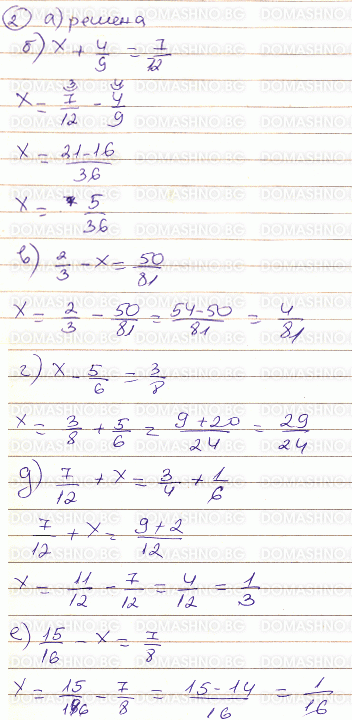 ② а) решена
б) x + 4/9 = 7/12
x = 7/12 - 4/9
x = 21-16/36
x = 5/36
в) 2/3 - x = 50/81
x = 2/3 - 50/81 = 54-50/81 = 4/81
г) x - 5/6 = 3/8
x = 3/8 + 5/6 = 9+20/24 = 29/24
д) 7/12 + x = 3/4 + 1/6
7/12 + x = 9+2/12
x = 11/12 - 7/12 = 4/12 = 1/3
е) 15/16 - x = 7/8
x = 15/16 - 7/8 = 15-14/16 = 1/16